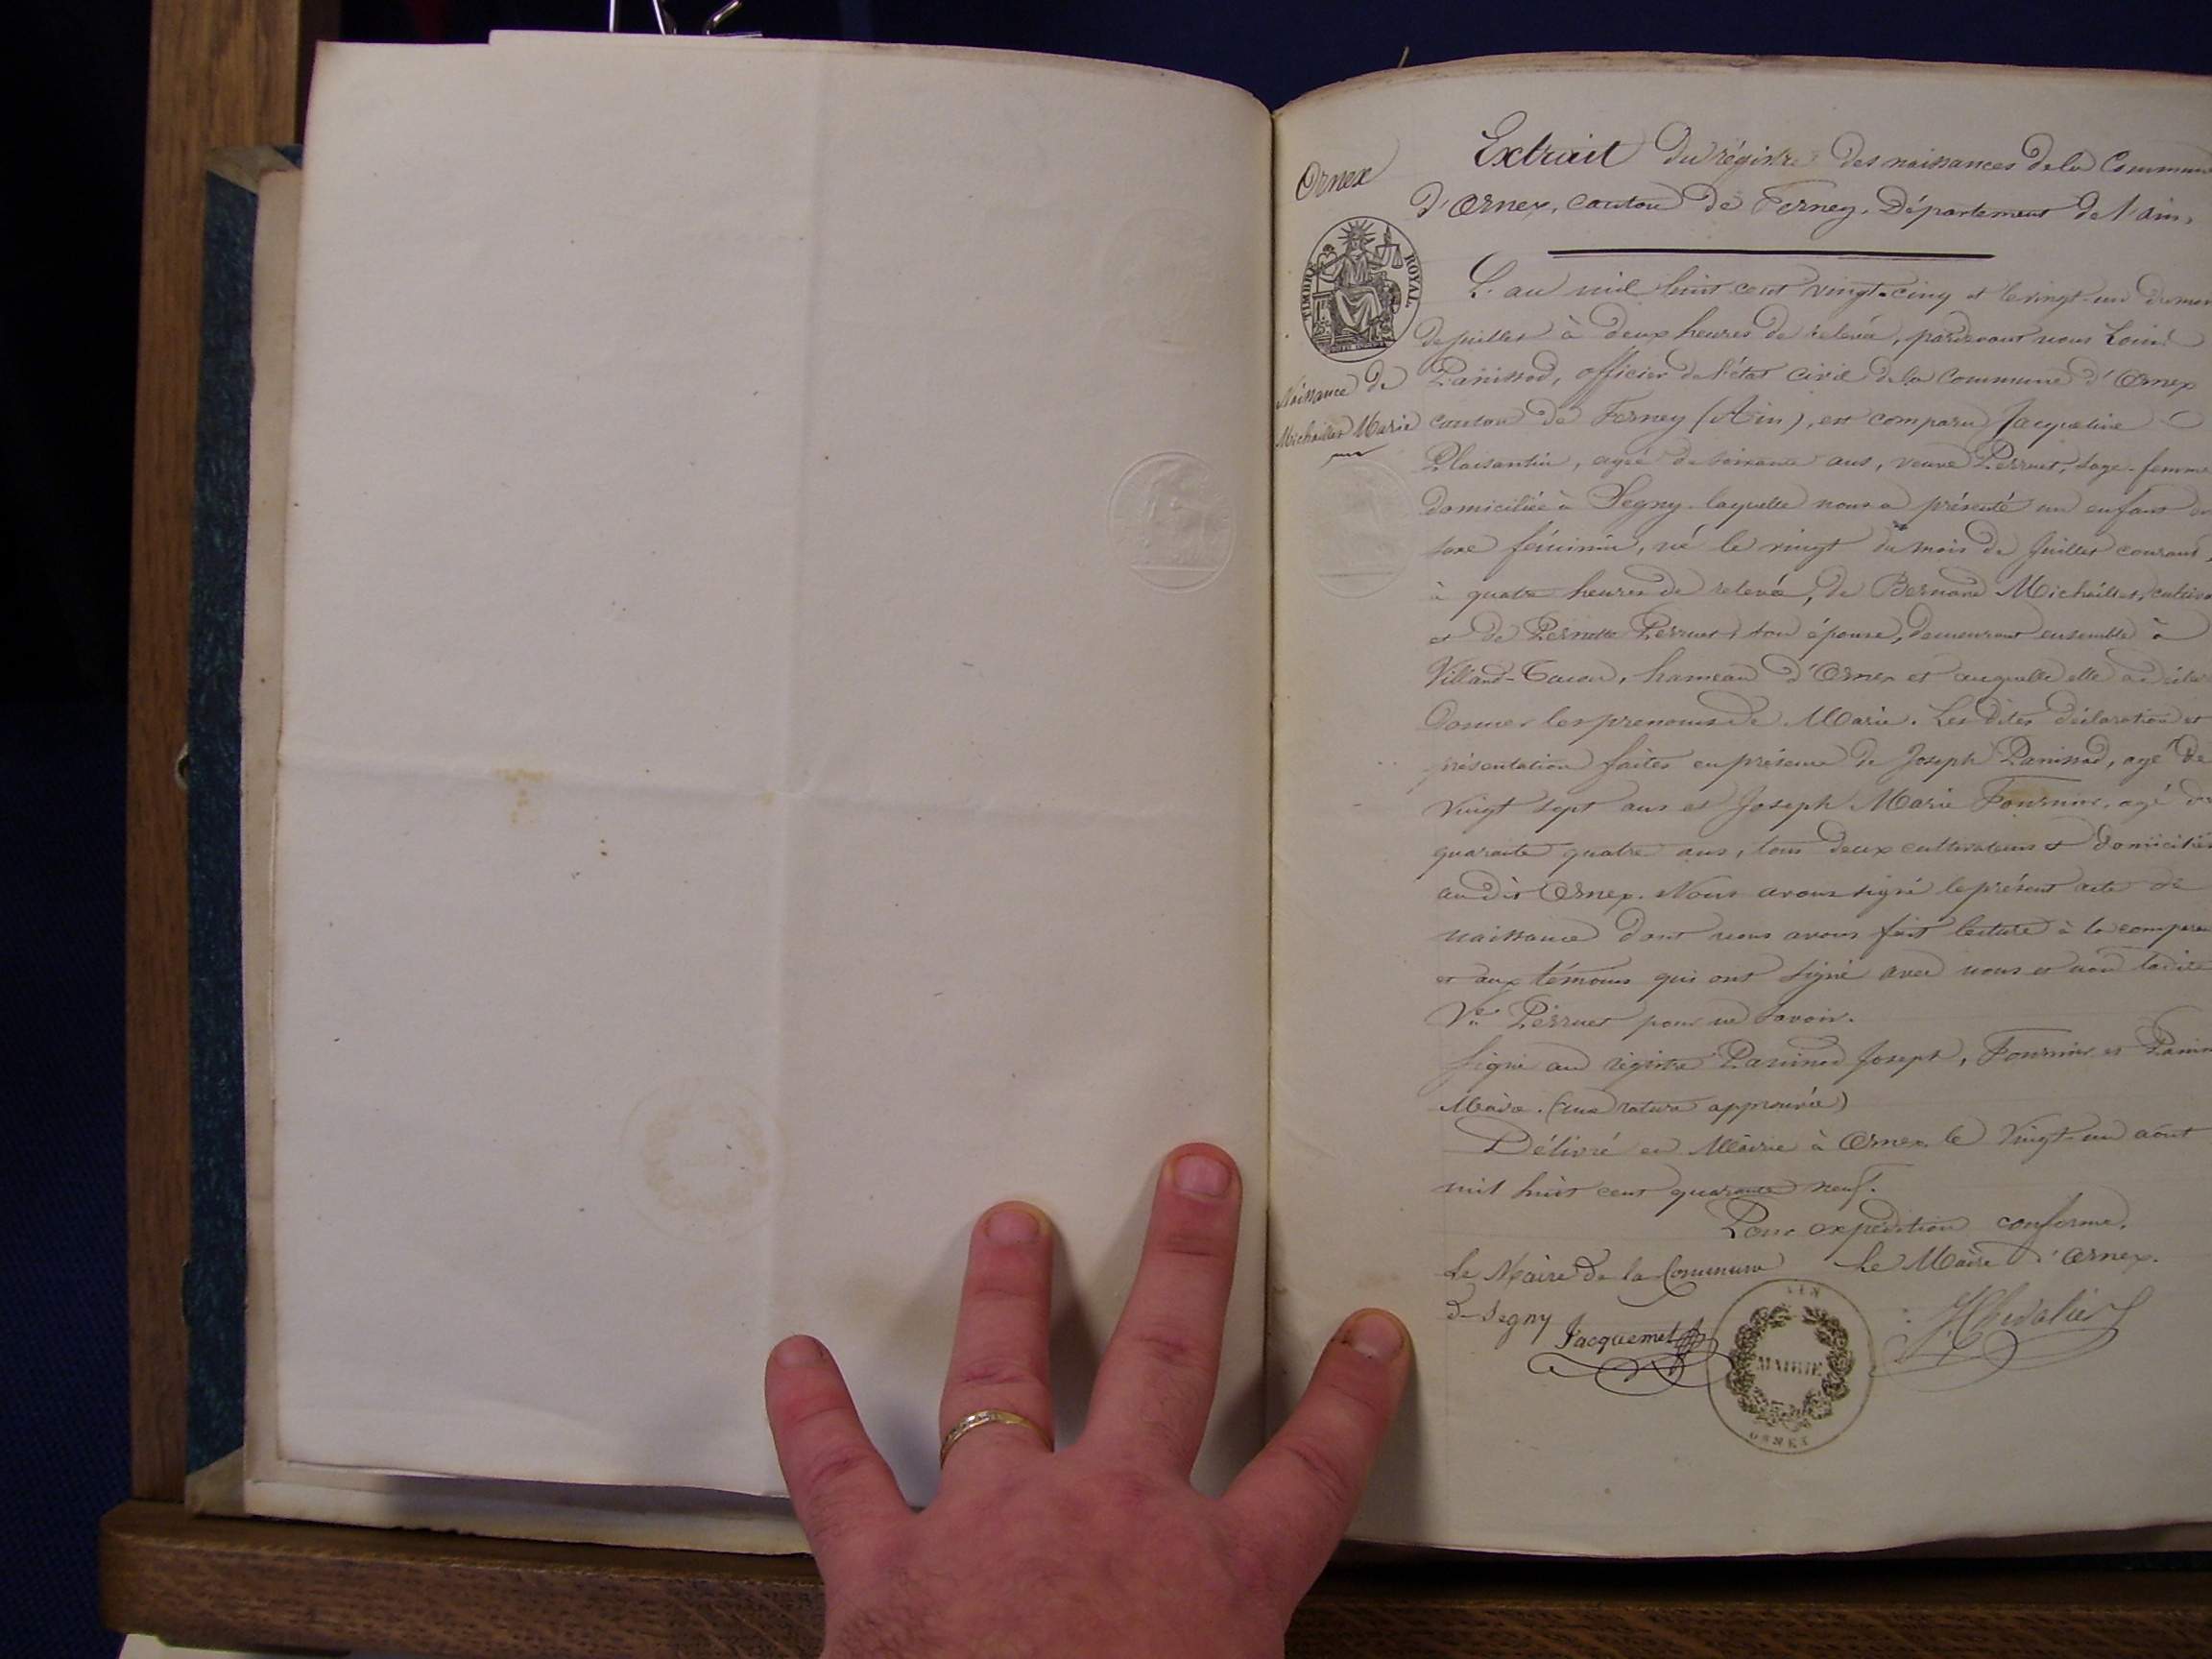 Extrait du régistre des naissances de la Commune
Ornex
d'Ornex, canton de Ferney, Département de l'ain,
TIMBRE ROYAL
L'an mil huit cent vingt-cinq et le vingt-un du mois
de juillet à deux heures de relevée, pardevant nous Louis
Naissance de
Panissod, officier de l'état civil de la commune d'Ornex
Michaillet Marie
canton de Ferney (Ain), est comparu Jacqueline
Plaisantin, agée de soixante ans, veuve Perruet, sage-femme
domiciliée à Segny laquelle nous a présenté un enfant du
sexe féminin, né le vingt du mois de Juillet courant,
à quatre heures de relevée, de Bernard Michaillet,
et de Pernette Perruet, son épouse, demeurant ensemble à
Villard-Tacon, hameau d'Ornex et auquelle elle a déclaré
donner les prenoms de Marie. Les dites déclaration et
présentation faites en présence de Joseph Panissod, agé de
vingt sept ans et Joseph Marie Fournier, agé de
quarante quatre ans, tous deux cultivateurs et domiciliés
au dit Ornex. Nous avons signé le présent acte de
naissance dont nous avons fait lecture à la
et aux témoins qui ont signé avec nous et non la dite
Ve Perruet pour ne savoir.
Signé au régistre Panissod Joseph, Fournier et
Maire. (une rature approuvée)
Délivré en Mairie à Ornex le Vingt-un août
mil huit cent quarante neuf.
Pour expédition conforme.
Le Maire de la Commune
Le Maire d'Ornex.
de Segny
Jacquemet
JChevalier
AIN
MAIRIE
ORNEX